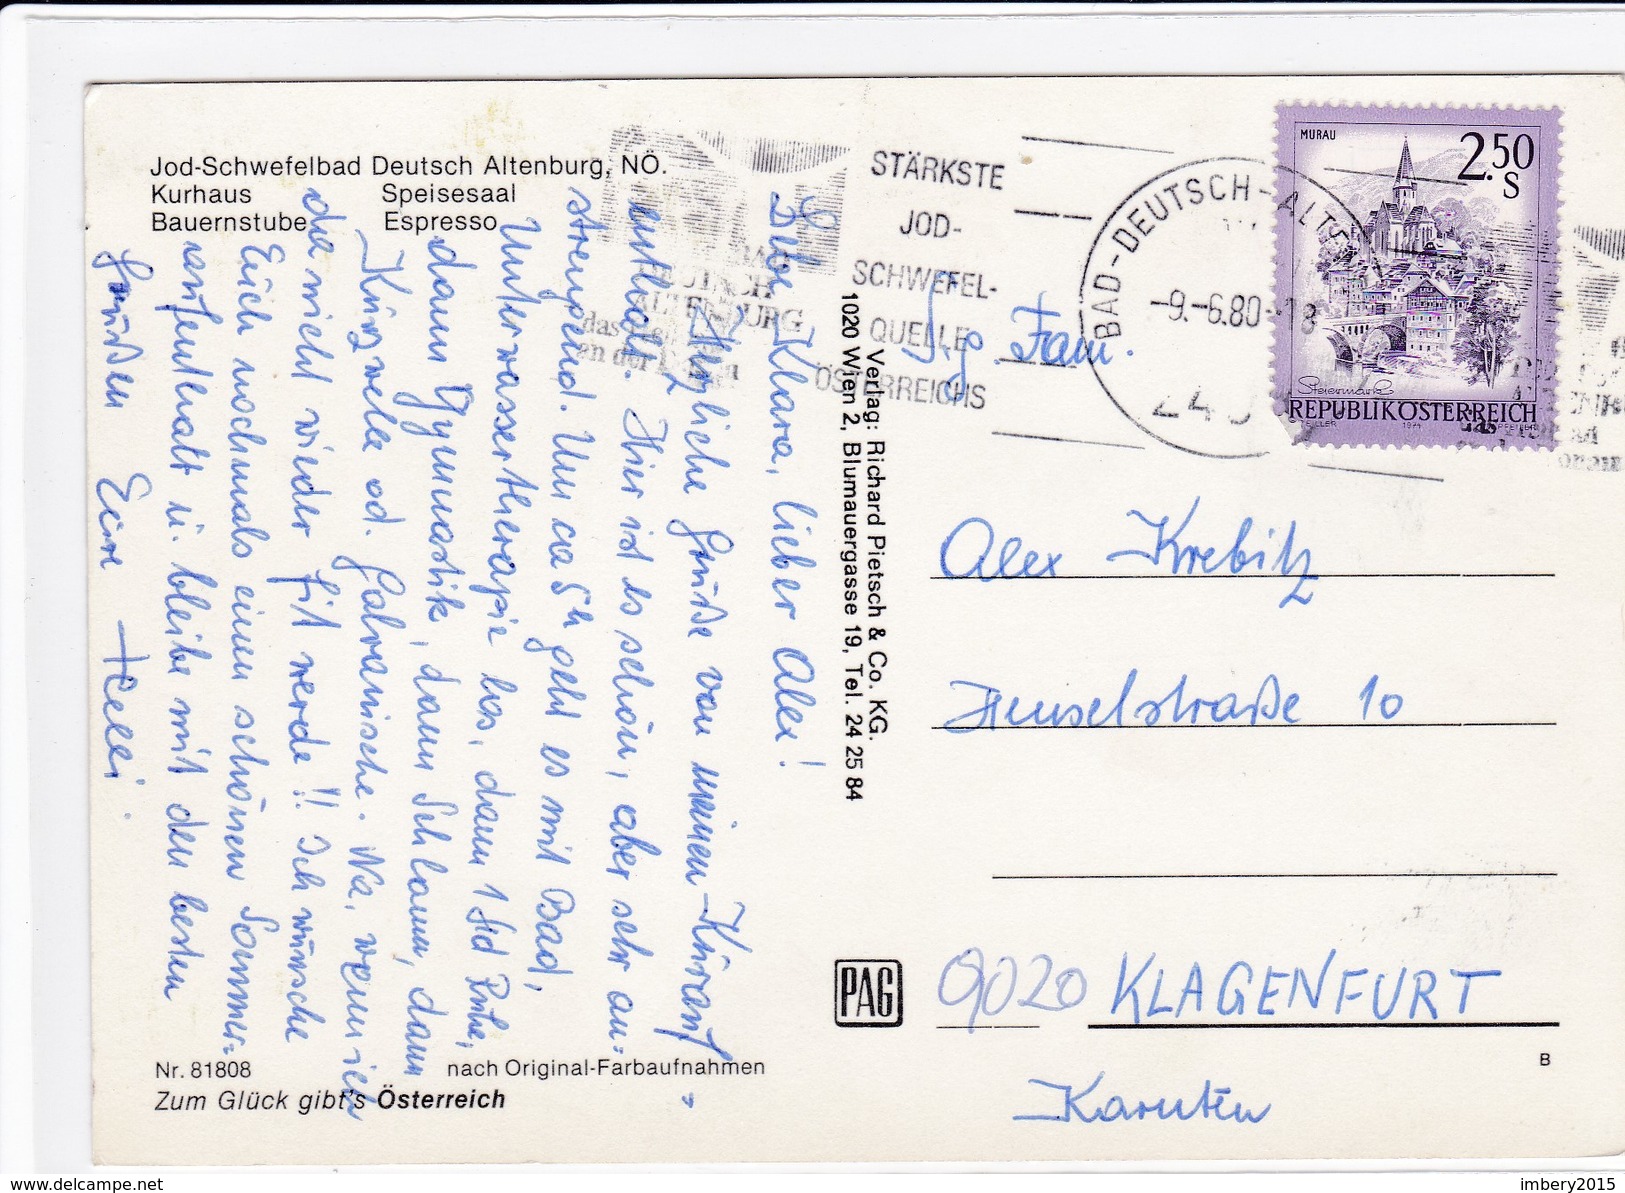 Jod-Schwefelbad Deutsch Altenburg, NÖ.
Kurhaus Speisesaal
Bauernstube Espresso
Liebe Klara, lieber Alex!
Herzliche Grüße von meinem Kurauf-
enthalt. Hier ist es schön, aber sehr an-
strengend. Um ca 5h geht es mit Bad,
Unterwassertherapie los, dann 1 Std Ruhe,
dann Gymnastik, dann Schlamm, dann
Kurzwelle od. Galvanische. Na, wenn ich
da nicht wieder fit werde!! Ich wünsche
Euch nochmals einen schönen Sommer-
aufenthalt u. bleibe mit den besten
Grüßen Eure Helli.
Nr. 81808 nach Original-Farbaufnahmen
Zum Glück gibt's Österreich
Verlag: Richard Pietsch & Co. KG.
1020 Wien 2, Blumauergasse 19, Tel. 24 25 84
PAG
STÄRKSTE
JOD-
SCHWEFEL-
QUELLE
ÖSTERREICHS
BAD-DEUTSCH-ALTE
-9.-6.80-18
BAD
DEUTSCH
ALTENBURG
an der
MURAU
2.50
S
Steiermark
REPUBLIK ÖSTERREICH
1974
S.g. Fam.
Alex Krebitz
Henselstraße 10
9020 KLAGENFURT
Kärnten
B
www.delcampe.net
imbery2015